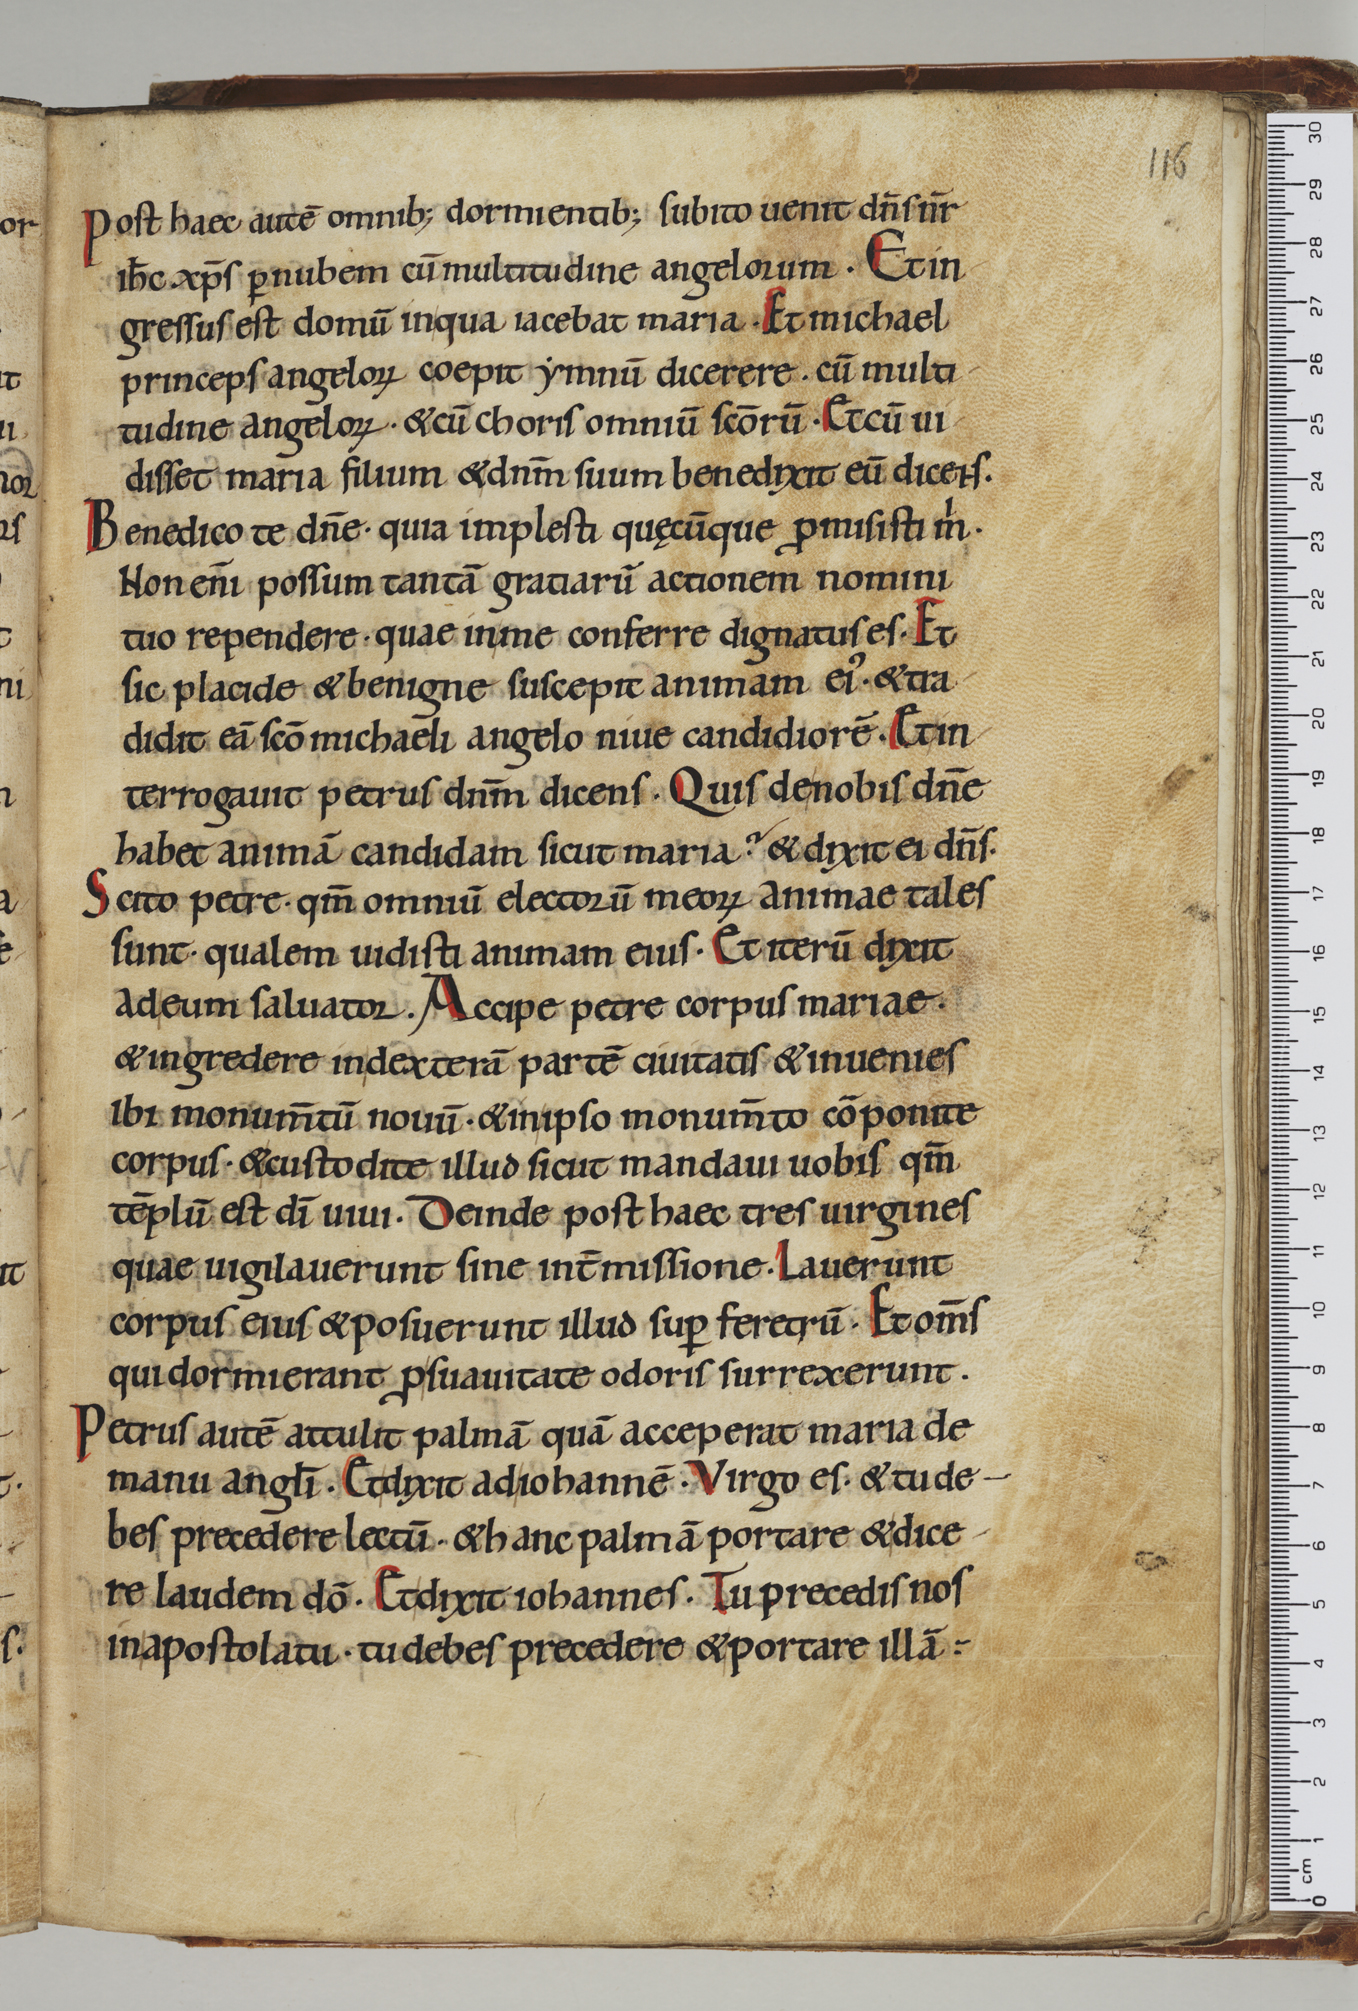 116
Post haec autē omnib; dormientib; subito uenit dn̄s nr̄
ih̄c xp̄s ꝑ nubem cū multitudine angelorum . Et in
gressus est domū in qua iacebat maria . Et michael
princeps angeloꝝ coepit ẏmnū dicerere . cū multi
tudine angeloꝝ . & cū choris omniū scōrū . Et cū ui
disset maria filium & dnm̄ suum benedixit eū dicens .
Benedico te dn̄e . quia implesti quęcūque ꝓmisisti ṁ .
Non enī possum tantā gratiarū actionem nomini
tuo rependere . quae in me conferre dignatus es . Et
sic placide & benigne suscepit animam eiꝰ . & tra
didit eā scō michaeli angelo niue candidiorē . Et in
terrogauit petrus dnm̄ dicens . Quis de nobis dn̄e
habet animā candidam sicut maria ? & dixit ei dn̄s .
Scito petre . qm̄ omniū electorū meoꝝ animae tales
sunt . qualem uidisti animam eius . Et iterū dixit
ad eum saluator . Accipe petre corpus mariae .
& ingredere in dexterā partē ciuitatis & inuenies
ibi monum̄tū nouū . & in ipso monum̄to cōponite
corpus . & custodite illud sicut mandaui uobis qm̄
tēplū est dī uiui . Deinde post haec tres uirgines
quae uigilauerunt sine int̄missione . Lauerunt
corpus eius & posuerunt illud suꝑ feretrū . Et om̄s
qui dormierant ꝓ suauitate odoris surrexerunt .
Petrus autē attulit palmā quā acceperat maria de
manu angl̄i . Et dixit ad iohannē . Virgo es . & tu de-
bes precedere lectū . & hanc palmā portare & dice
re laudem dō . Et dixit iohannes . Tu precedis nos
in apostolatu . tu debes precedere & portare illā :-